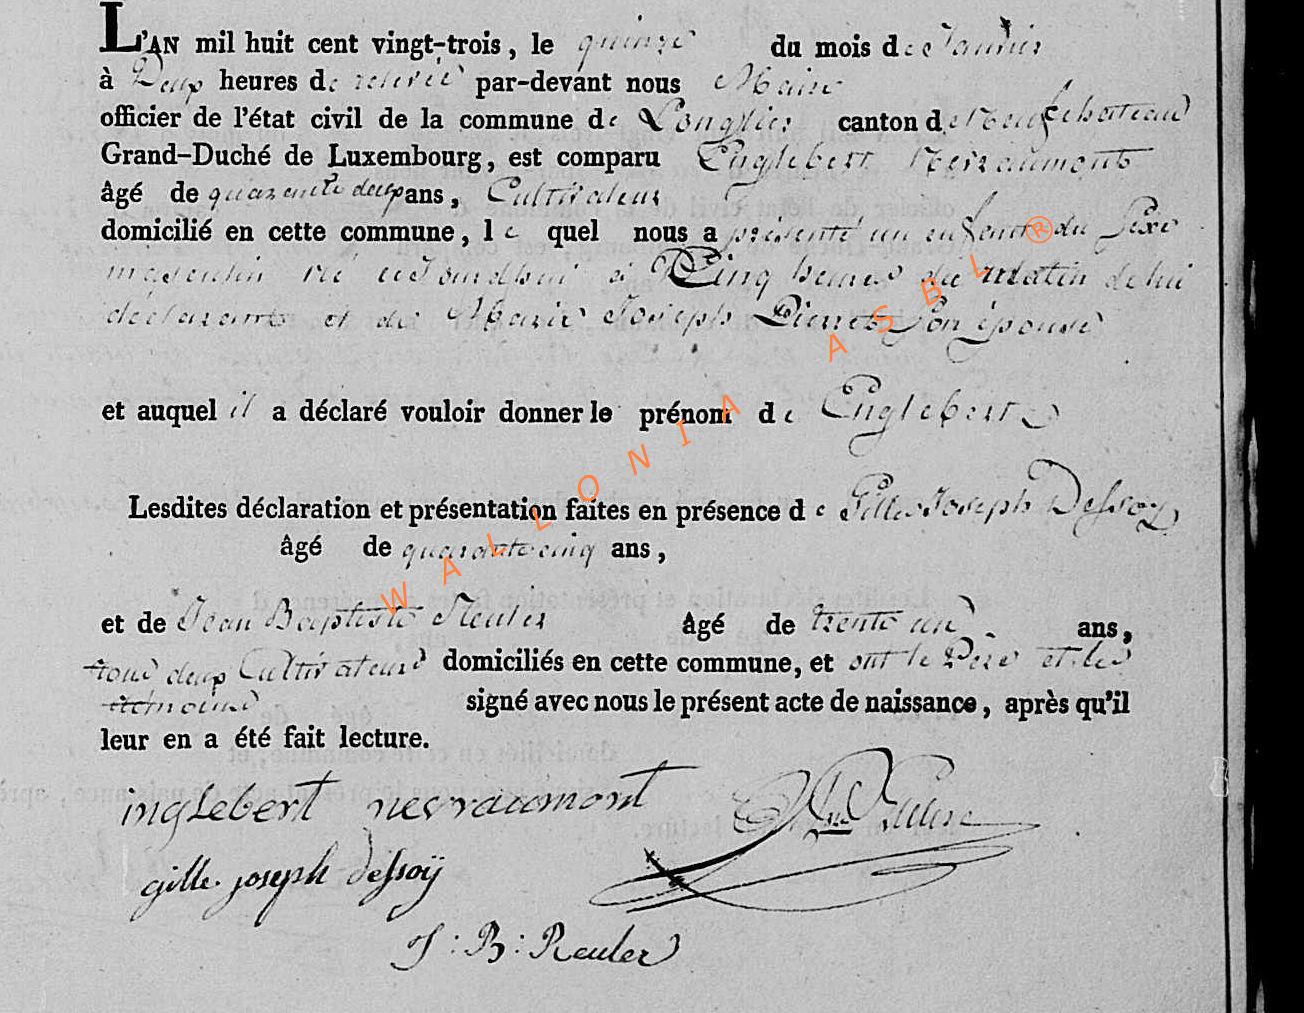 L'AN mil huit cent vingt-trois, le quinze du mois de Janvier
à Deux heures de relevée par-devant nous Maire
officier de l'état civil de la commune de Longlier canton de Neufchateau
Grand-Duché de Luxembourg, est comparu Englebert Nerraumont
âgé de quarente deux ans, Cultivateur
domicilié en cette commune, le quel nous a présenté un enfant du Sexe
masculin né aujourdhui à Cinq heures du matin de lui
déclarant et de Marie Joseph Pierret Son épouse
et auquel il a déclaré vouloir donner le prénom de Englebert
Lesdites déclaration et présentation faites en présence de Gille Joseph Dessoy
âgé de quarante cinq ans,
et de Jean Baptiste Reuler âgé de trente un ans,
tous deux Cultivateurs domiciliés en cette commune, et ont le Pere et les
témoins signé avec nous le présent acte de naissance, après qu'il
leur en a été fait lecture.
inglebert nerraumont
gille joseph dessoÿ
J : B : Reuler
WALLONIA ASBL ®